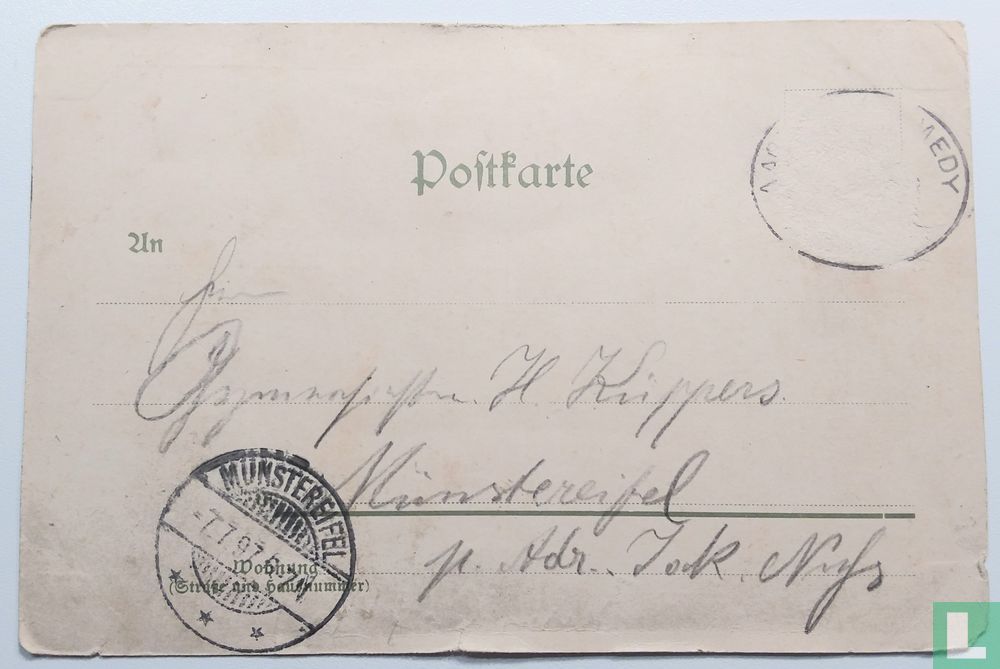 Postkarte
MEDY
An
Herrn
H. Küppers
MÜNSTEREIFEL
Münstereifel
-7.7.97
p. Adr.
Wohnung
(Straße und Hausnummer)
L